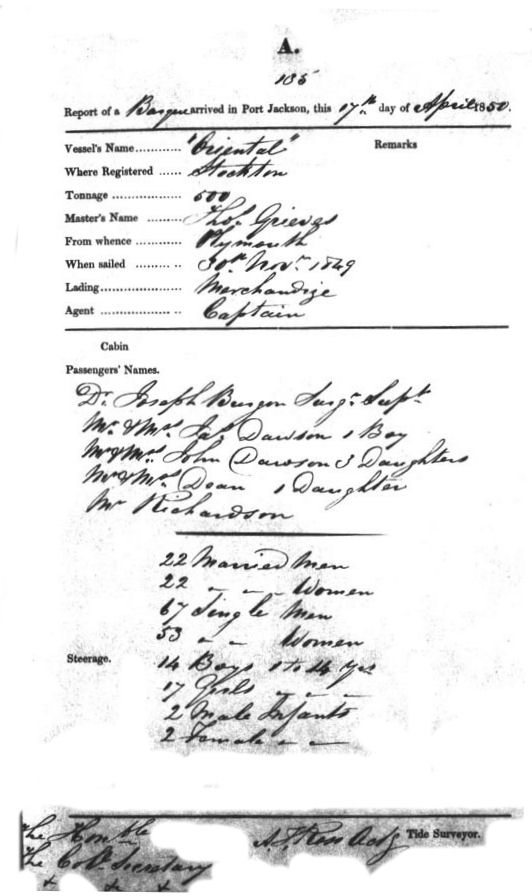 A.
185
Report of a Barque arrived in Port Jackson, this 17th day of April 1850.
Vessel's Name............ "Oriental" Remarks
Where Registered ...... Stockton
Tonnage .................. 500
Master's Name ......... Thos. Grieves
From whence ............ Plymouth
When sailed ......... .. 30th Novr. 1849
Lading..................... Merchandize
Agent ..................... Captain
Cabin
Passengers' Names.
Dr. Joseph Burgon Surgn. Supt.
Mr. & Mrs. Jas. Dawson 1 Boy
Mr & Mrs. John Dawson 3 Daughters
Mr & Mrs. Dean 1 Daughter
Mr Richardson
22 Married Men
22 " " Women
67 Single Men
53 " " Women
Steerage. 14 Boys 1 to 14 yrs
17 Girls " " "
2 Male Infants
2 Female " "
The Honble
The Coll. Secretary A. Ross Actg Tide Surveyor.
+ + +